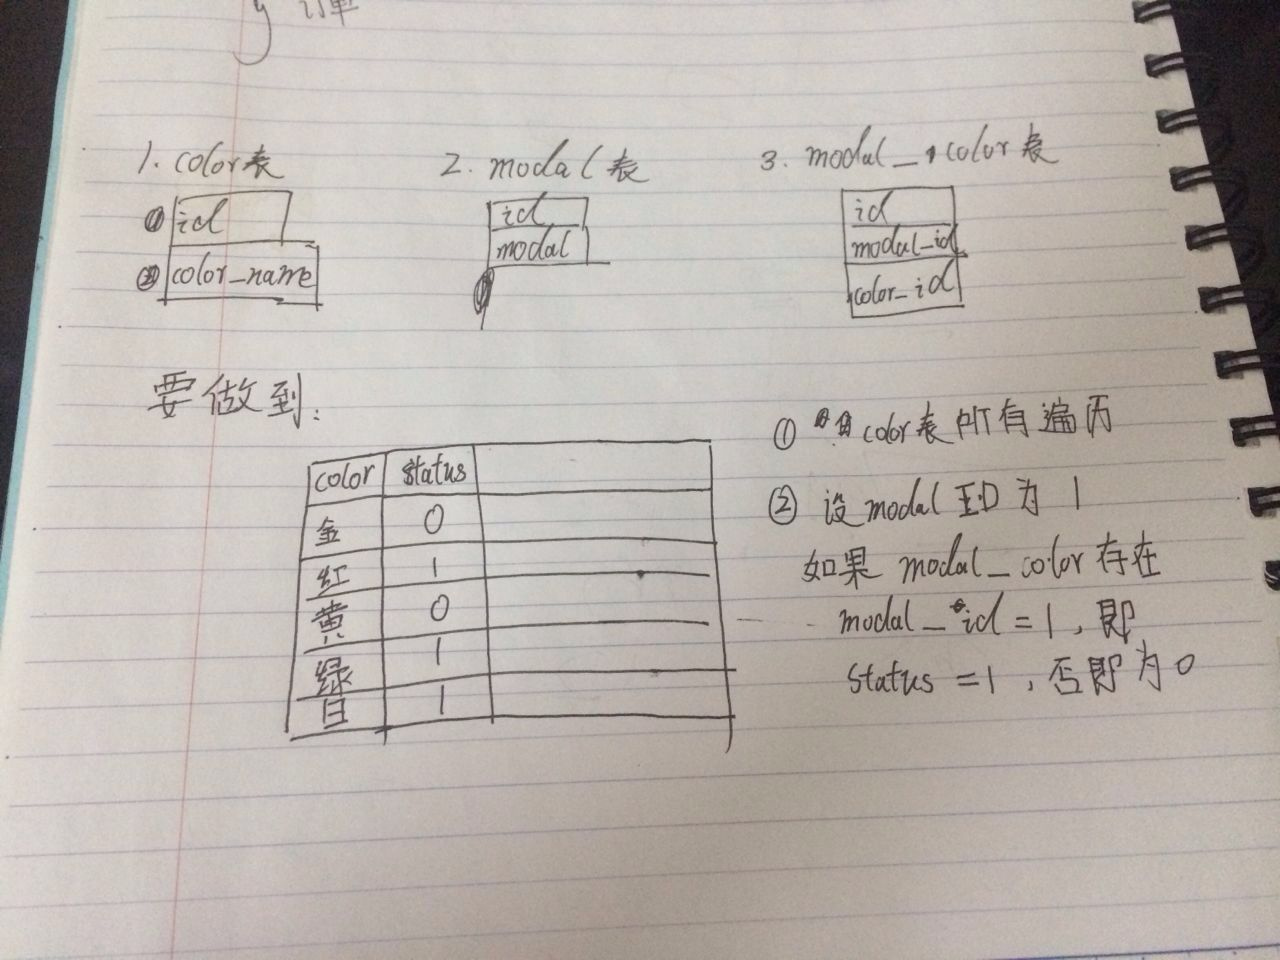 订单
1. color表
2. modal表
3. modal_color表
① id
② color_name
id
modal
id
modal_id
color_id
要做到:
color status
金 0
红 1
黄 0
绿 1
白 1
① color表所有遍历
② 设modal ID为1
如果 modal_color存在
modal_id=1,即
status=1,否即为0